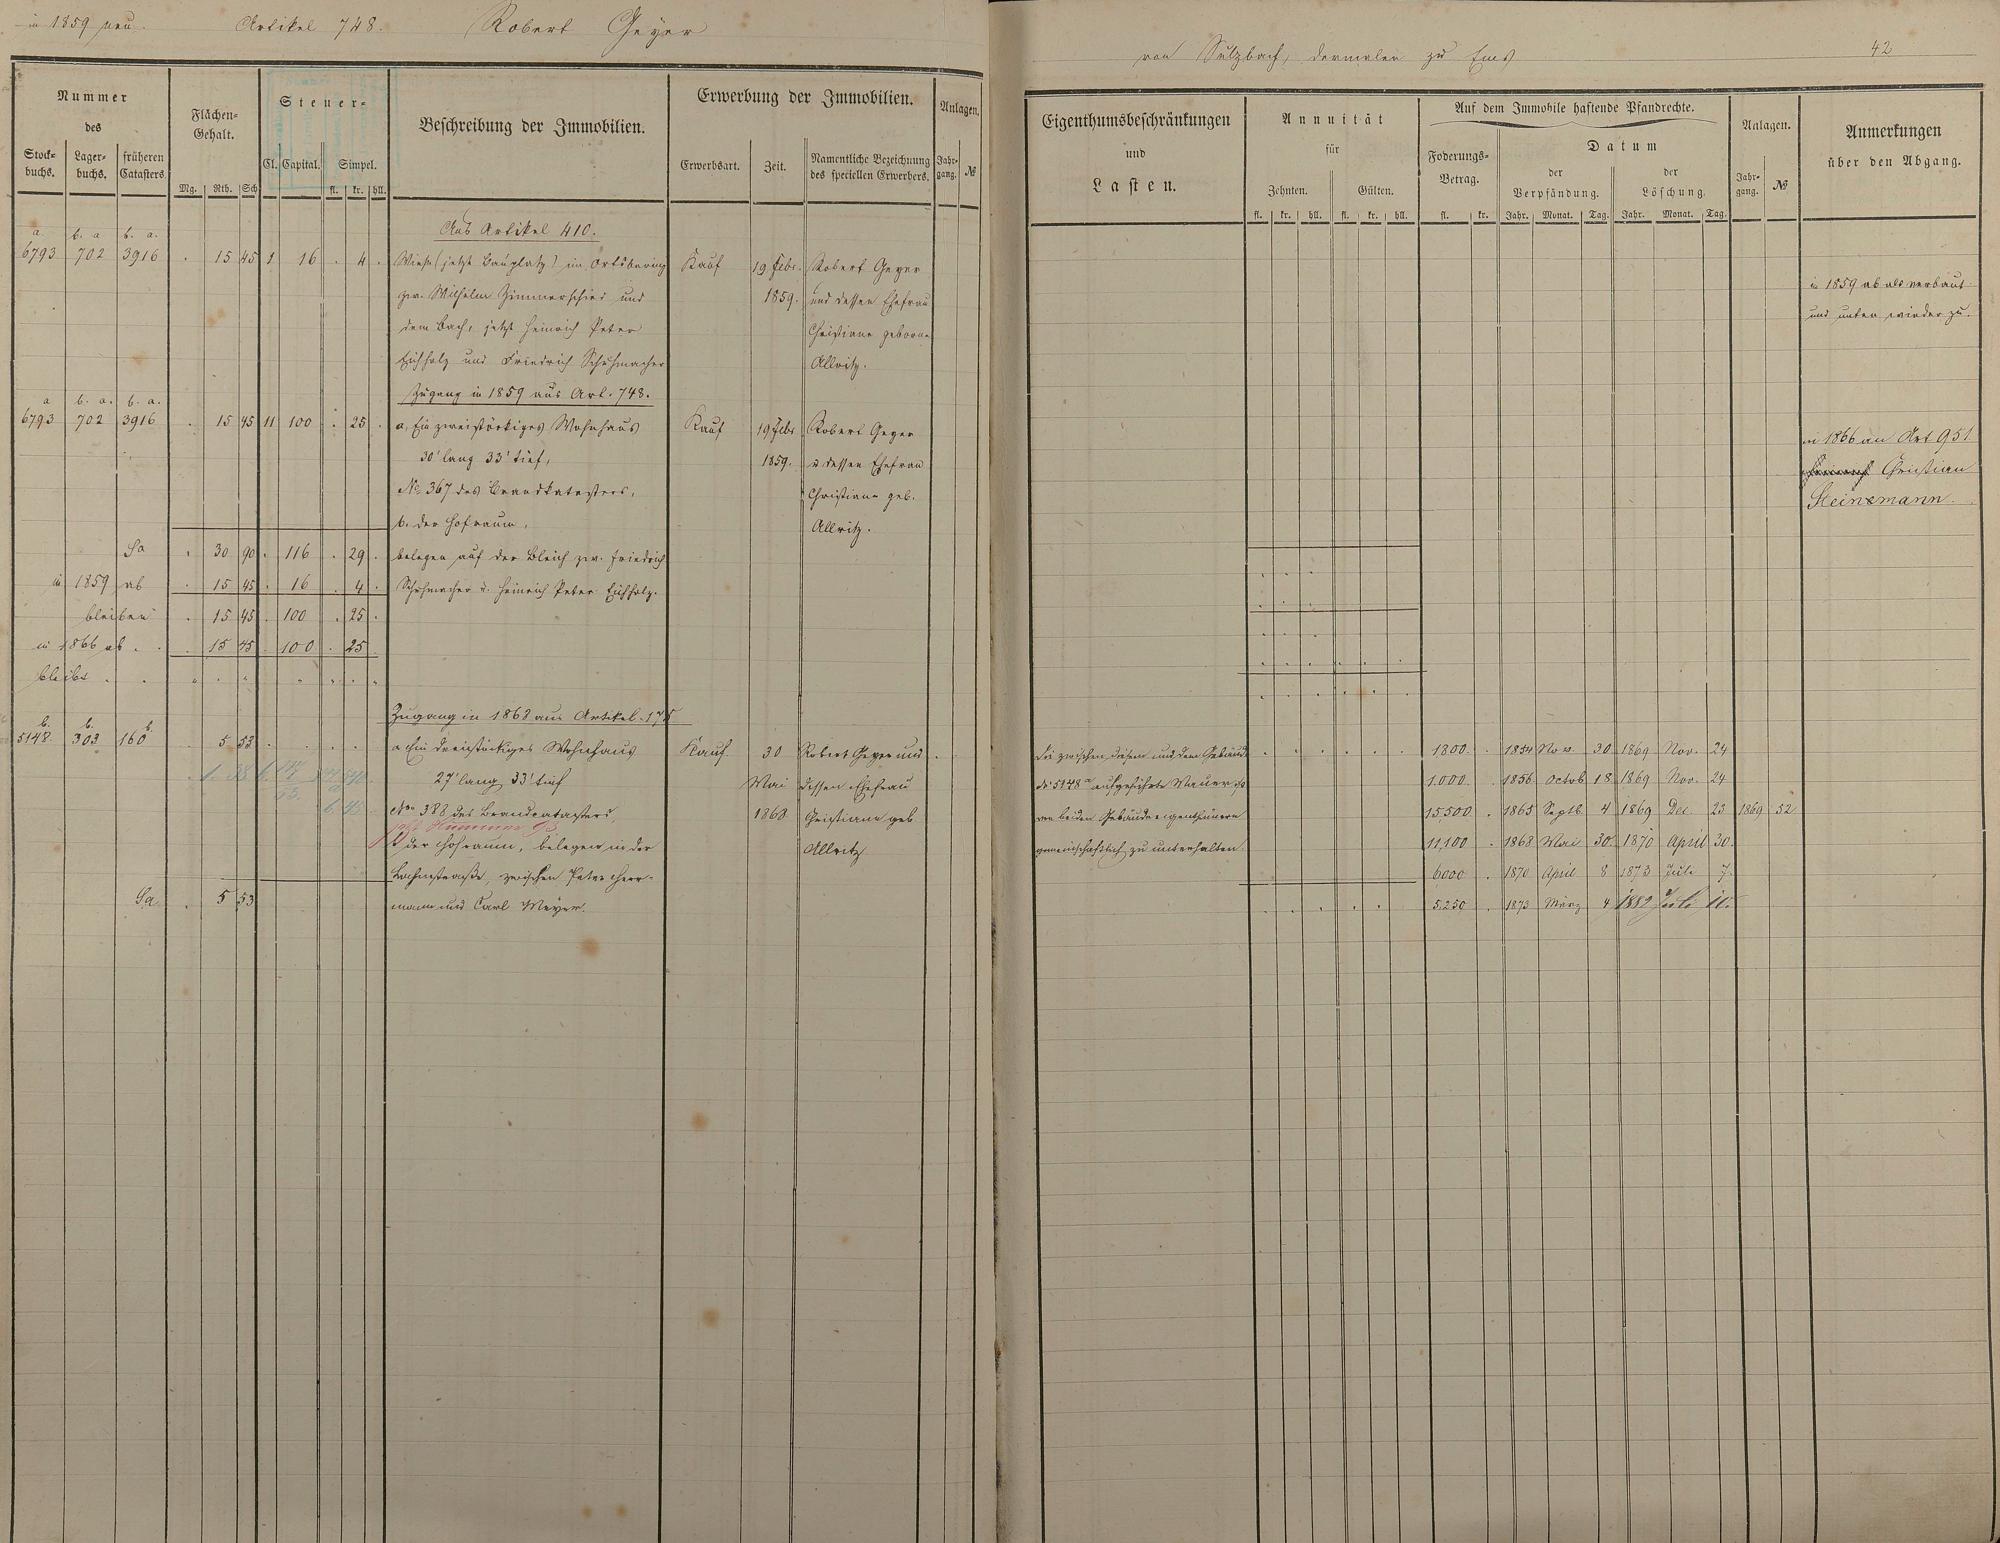 in 1859 neu. Artikel 748. Robert Geyer
von Sulzbach, dermalen zu Ems 42
Nummer des
Stock-buchs. Lager-buchs. früheren Catasters.
Flächen-Gehalt.
Mg. Rth. Sch
Steuer-
Cl. Capital. Simpel.
fl. kr. hll.
Beschreibung der Immobilien.
Erwerbung der Immobilien.
Erwerbsart. Zeit. Namentliche Bezeichnung des speciellen Erwerbers.
Anlagen.
Jahr-gang. №
Eigenthumsbeschränkungen und Lasten.
Annuität für
Zehnten. Gülten.
fl. kr. hll. fl. kr. hll.
Auf dem Immobile haftende Pfandrechte.
Foderungs-Betrag.
fl. kr.
Datum
der Verpfändung. der Löschung.
Jahr. Monat. Tag. Jahr. Monat. Tag.
Anlagen.
Jahr-gang. №
Anmerkungen über den Abgang.
Aus Artikel 410.
a. b. a b. a.
6793 702 3916 . 15 45 1 16 . 4 . Wiese (jetzt Bauplatz) im Ortsbering Kauf 19 Febr. Robert Geyer
zw. Wilhelm Zimmerschied und 1859. und dessen Ehefrau
dem Bach, jetzt Heinrich Peter Christiane geborne
Eichholz und Friedrich Schuhmacher Allritz.
in 1859 ab als verbaut
und unten wieder zu.
Zugang in 1859 aus Art. 748.
a b. a. b. a.
6793 702 3916 . 15 45 11 100 . 25 . a, Ein zweistöckiges Wohnhaus Kauf 19 Febr Robert Geyer
30' lang 33' tief, 1859. u dessen Ehefrau
№ 367 des Brandkatasters, Christiane geb.
b. der Hofraum, Allritz.
in 1866 an Art 951
Christian
Steinemann.
Sa . 30 90 . 116 . 29 . belegen auf der Bleich zw. Friedrich
in 1859 ab . 15 45 . 16 . 4 . Schuhmacher u. Heinrich Peter Eichholz.
bleiben . 15 45 . 100 . 25 .
in 1866 ab . . 15 45 . 100 . 25
bleibt . .
Zugang in 1868 aus Artikel 175
b. b. b.
5148. 303 160 . 5 53 . . . . . a Ein dreistöckiges Wohnhaus Kauf 30 Robert Geyer und
27' lang 33' tief Mai dessen Ehefrau
No 388 des Brandcatasters, 1868 Christiane geb
jetzt Nummer 93
b der Hofraum, belegen in der Allritz
Lahnstraße, zwischen Peter Herr-
Sa . 5 53 mann und Carl Meyer.
Die zwischen diesem und dem Gebäude 1800 . 1854 Nov. 30 1869 Nov. 24
No 5148 a aufgeführte Mauer ist 1.000 . 1856 Octob 18 1869 Nov. 24
von beiden Gebäudeeigenthümern 15.500 . 1865 Septb. 4 1869 Dec. 23 1869 52
gemeinschaftlich zu unterhalten 11.100 . 1868 Mai 30. 1870 April 30.
6000 . 1870 April 8 1873 Juli 7.
5.250 . 1873 März 4 1882 Juli 10.